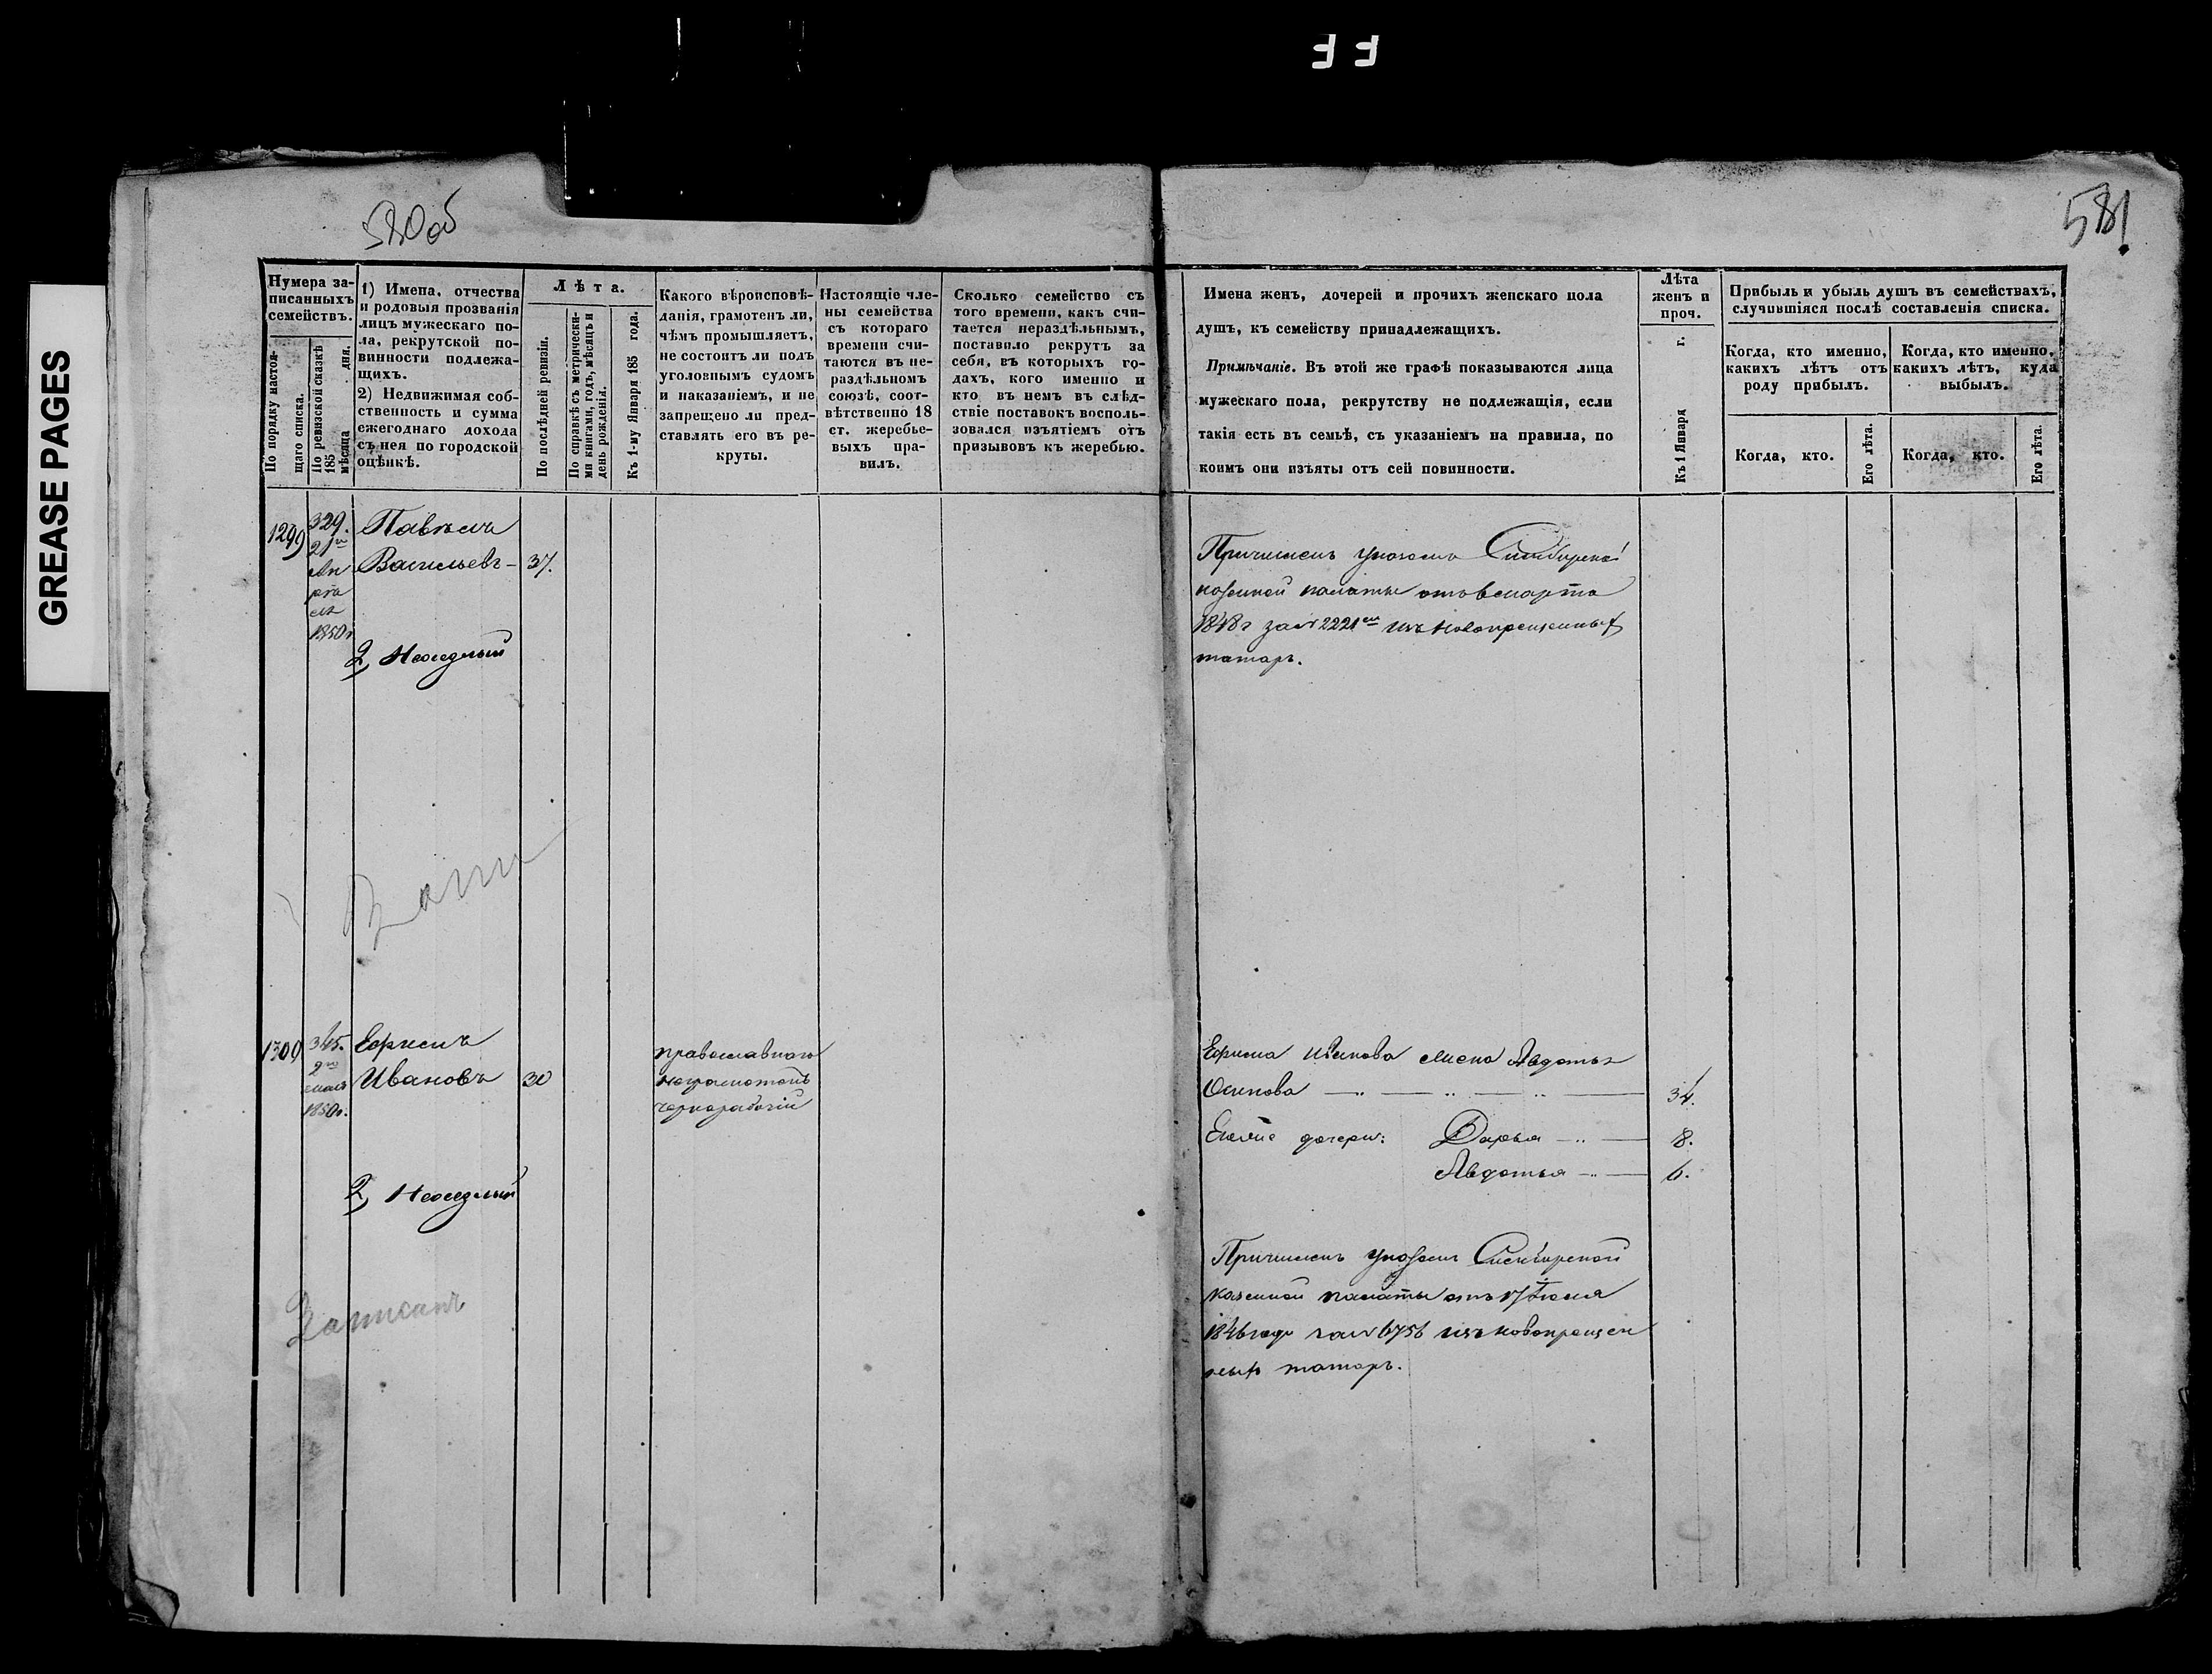 GREASE PAGES
FF
580об
581
Нумера за-
писанныхъ
семействъ.
По порядку настоя-
щаго списка.
По ревизской сказкѣ
185 дня.
мѣсяца
1) Имена, отчества
и родовыя прозванія
лицъ мужескаго по-
ла, рекрутской по-
винности подлежа-
щихъ.
2) Недвижимая соб-
ственность и сумма
ежегоднаго дохода
съ нея по городской
оцѣнкѣ.
Лѣта.
По послѣдней ревизіи.
По справкѣ съ метрически-
ми книгами, годъ, мѣсяцъ и
день рожденія.
Къ 1-му Января 185 года.
Какого вѣроисповѣ-
данія, грамотенъ ли,
чѣмъ промышляетъ,
не состоитъ ли подъ
уголовнымъ судомъ
и наказаніемъ, и не
запрещено ли пред-
ставлять его въ ре-
круты.
Настоящіе чле-
ны семейства
съ котораго
времени счи-
таются въ не-
раздѣльномъ
союзѣ, соот-
вѣтственно 18
ст. жеребье-
выхъ пра-
вилъ.
Сколько семейство съ
того времени, какъ счи-
тается нераздѣльнымъ,
поставило рекрутъ за
себя, въ которыхъ го-
дахъ, кого именно и
кто въ немъ въ слѣд-
ствіе поставокъ восполь-
зовался изъятіемъ отъ
призывовъ къ жеребью.
Имена женъ, дочерей и прочихъ женскаго пола
душъ, къ семейству принадлежащихъ.
Примѣчаніе. Въ этой же графѣ показываются лица
мужескаго пола, рекрутству не подлежащія, если
такія есть въ семьѣ, съ указаніемъ на правила, по
коимъ они изъяты отъ сей повинности.
Лѣта
женъ и
проч.
Къ 1 Января г.
Прибыль и убыль душъ въ семействахъ,
случившіяся послѣ составленія списка.
Когда, кто именно,
какихъ лѣтъ отъ
роду прибылъ.
Когда, кто именно,
какихъ лѣтъ, куда
выбылъ.
Когда, кто.
Его лѣта.
Когда, кто.
Его лѣта.
1299
329.
21го
Ап
рѣ
ля
1850г
Павелъ
Васильевъ — 37.
2, Неоседлый
Причисленъ указомъ Симбирской
казенной палаты отъ 8 марта
1848г за № 2221ем изъ новокрещенныхъ
татаръ.
1300
345.
2го
мая
1850г.
Ефимъ
Ивановъ 30
православнаго
неграмотенъ
чернорабочій
2, Неоседлый
Записанъ
Ефима Иванова жена Авдотья
Осипова — 34.
Ево дочери: Дарья — 8.
Авдотья — 6.
Причисленъ указомъ Симбирской
казенной палаты отъ 17 Іюня
1846 года за № 6756 изъ новокрещен
ныхъ татаръ.